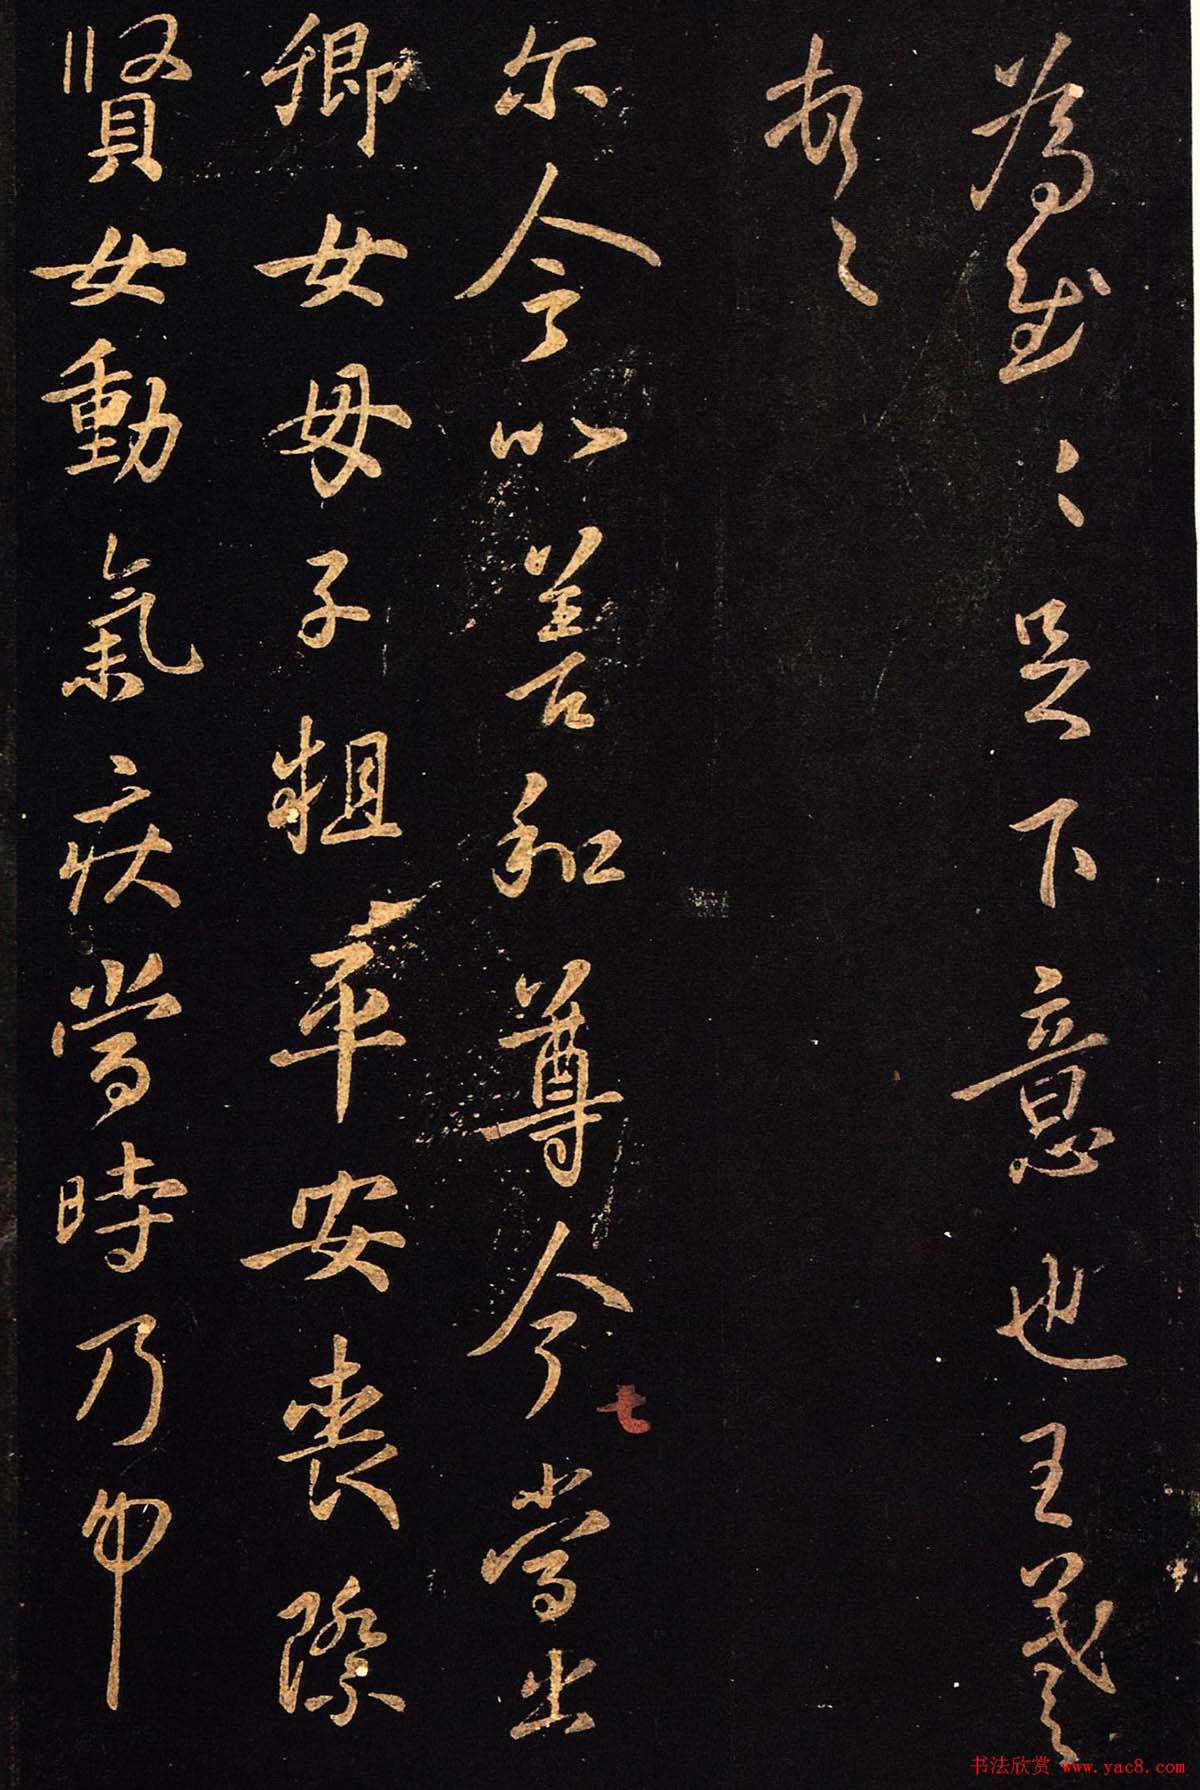 為〻足下意也王羲之
頓首
尔今以善和尊今當出
卿女母子粗平安喪際
賢女動氣疾當時乃
七
书法欣赏 www.yac8.com